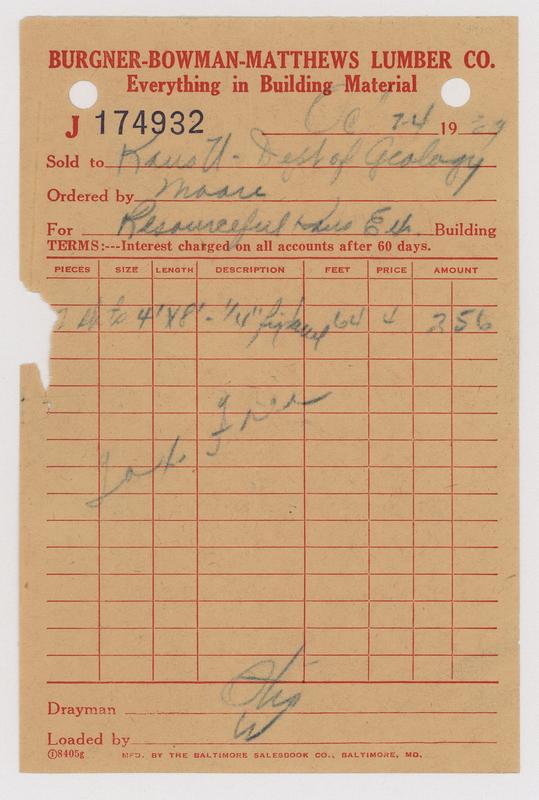 BURGNER-BOWMAN-MATTHEWS LUMBER CO.
Everything in Building Material
J 174932
Oc 24 19
Sold to Kans U - Dept of Geology
Ordered by Moore
For Resourceful Kans Ex. Building
TERMS:---Interest charged on all accounts after 60 days.
PIECES SIZE LENGTH DESCRIPTION FEET PRICE AMOUNT
4'X8' - 1/4" 64 4 2 56
Tax Free
Drayman
Loaded by
8405g MFD. BY THE BALTIMORE SALESBOOK CO., BALTIMORE, MD.